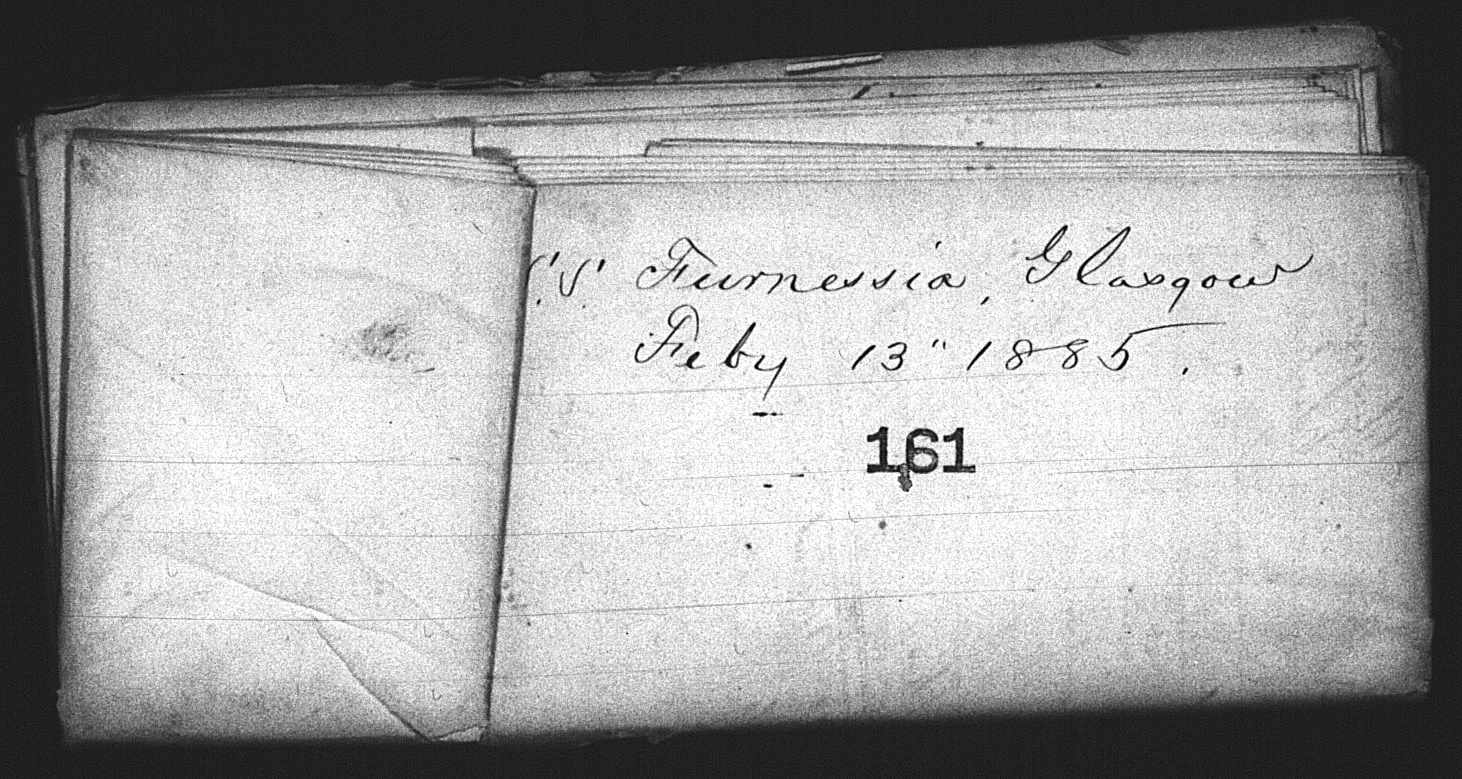 S.S. Furnessia, Glasgow
Feby 13" 1885.
161